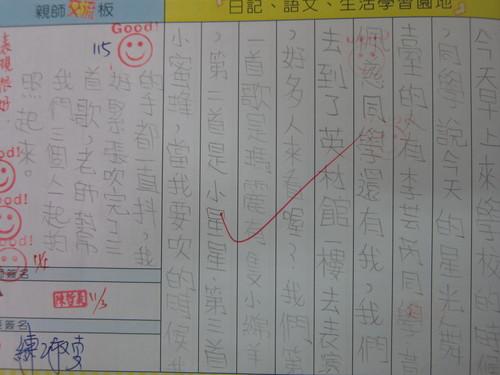 日記、語文、生活學習園地
今天早上來學校的時候
,同學說今天的星光舞
臺的人有李芸芮同學、黃
佩慈同學還有我,我們
去到了英林館一樓去表演
,好多人來看喔!我們第
一首歌是瑪麗有隻小綿羊
,第二首是小星星,第三首
小蜜蜂,當我要吹的時候我
的手都一直抖,我
好緊張吹完了三
首歌,老師幫
我們三個人一起拍
照起來。
親師交流板
Good!
115
表現很好
Good!
Good!
Good!
簽名
11/3